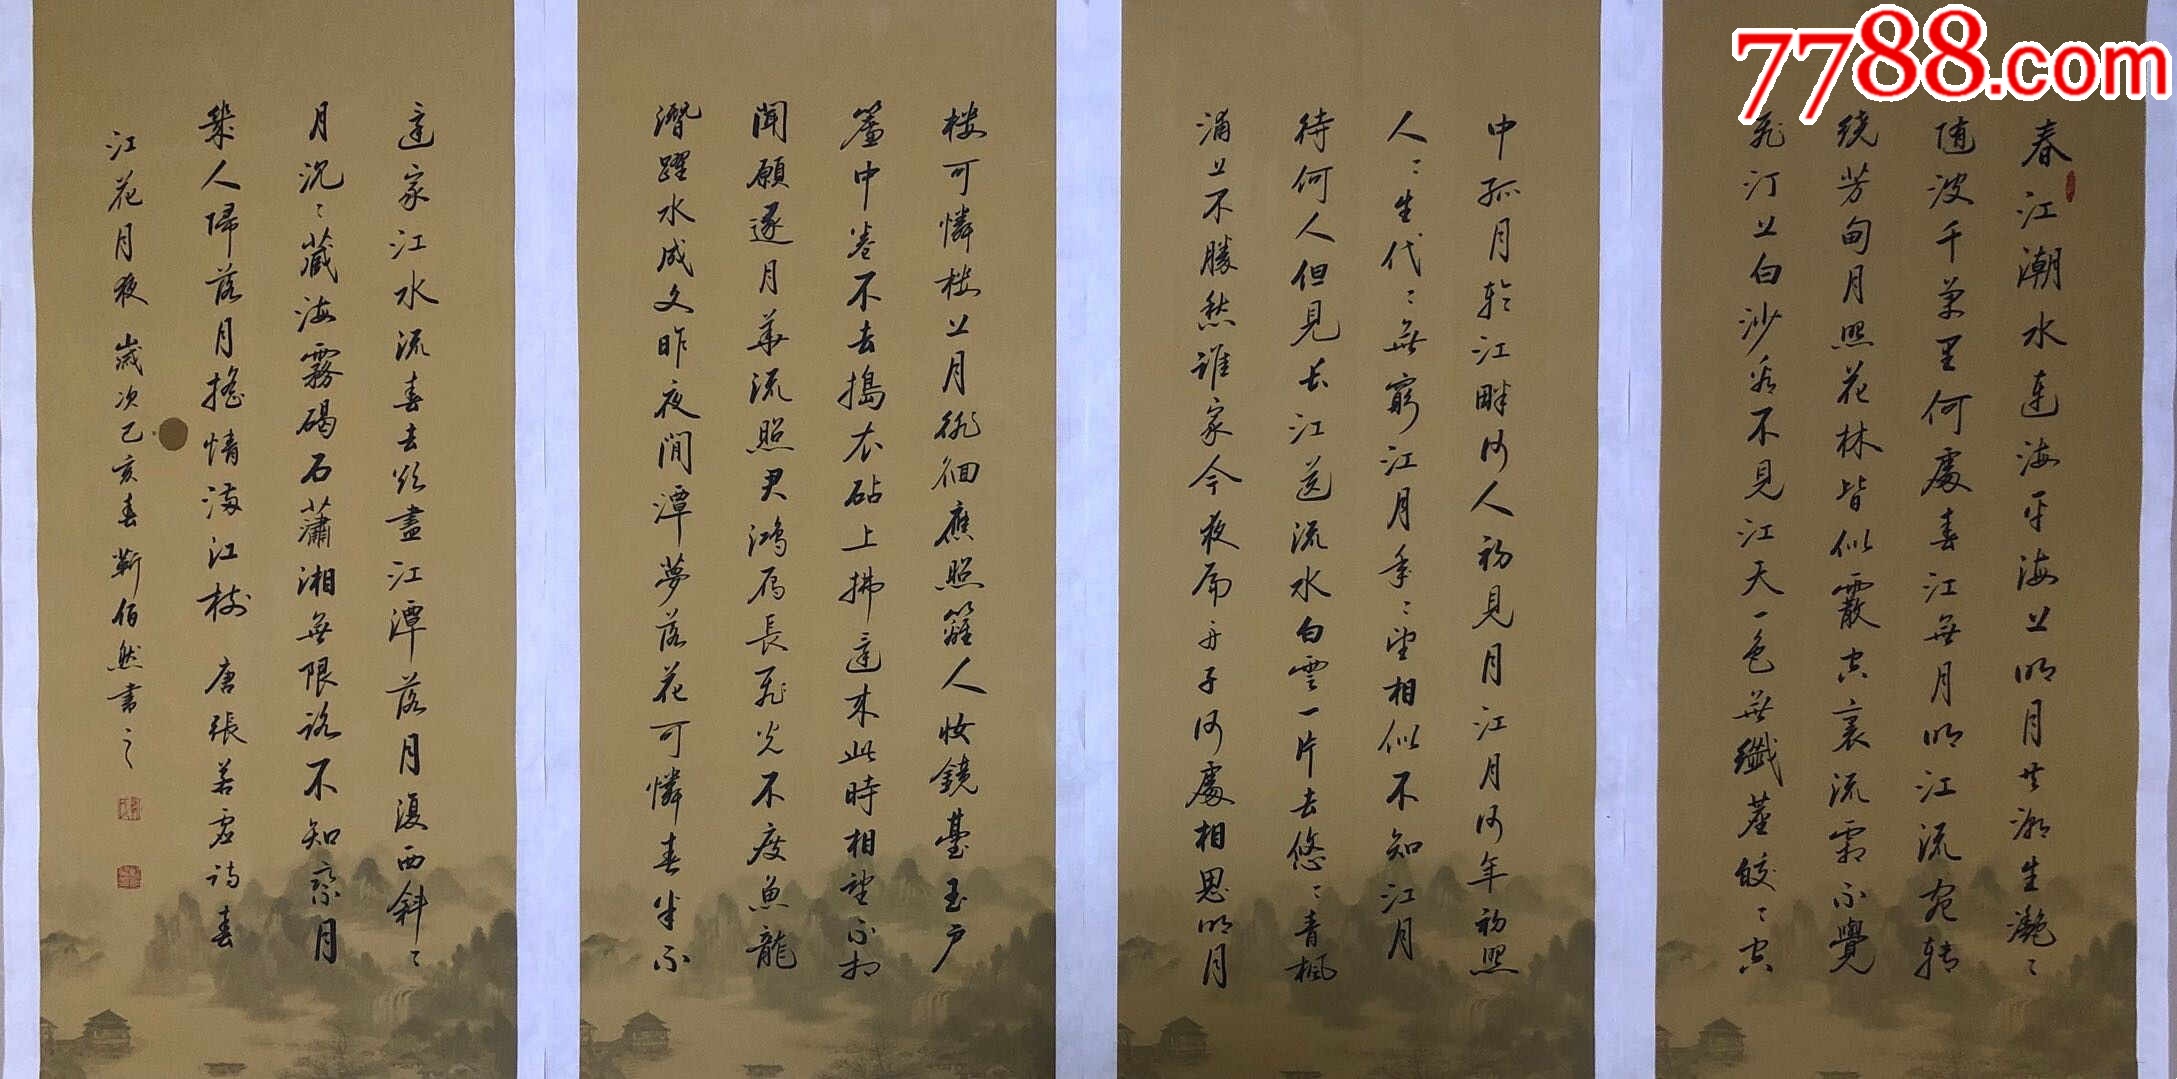 7788.com
春江潮水連海平海上明月共潮生灩〻
随波千萬里何處春江無月明江流宛转
绕芳甸月照花林皆似霰空裏流霜不覺
飛汀上白沙看不見江天一色無纖塵皎〻空
中孤月轮江畔何人初見月江月何年初照
人〻生代〻無窮江月年〻望相似不知江月
待何人但見長江送流水白雲一片去悠〻青楓
浦上不勝愁誰家今夜扁舟子何處相思明月
楼可憐楼上月徘徊應照離人妝鏡臺玉户
簾中卷不去搗衣砧上拂還来此時相望不相
聞願逐月華流照君鴻雁長飛光不度魚龍
潛躍水成文昨夜閒潭夢落花可憐春半不
還家江水流春去欲盡江潭落月復西斜〻
月沉〻藏海霧碣石瀟湘無限路不知乘月
幾人歸落月搖情滿江樹 唐張若虛詩春
江花月夜 歲次己亥春靳伯然書之